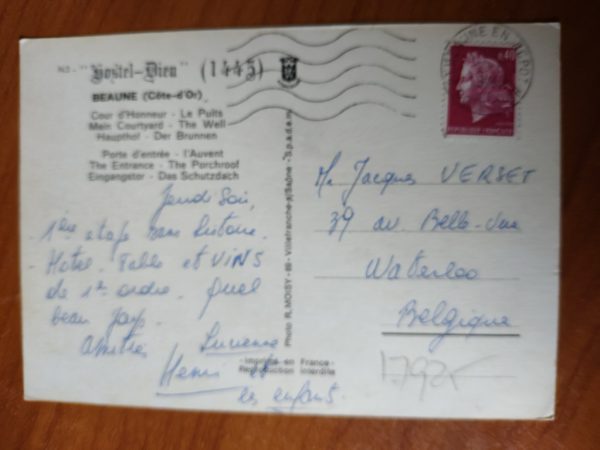 N3 - "Hostel-Dieu" (1443)
BEAUNE (Côte-d'Or)
Cour d'Honneur - Le Puits
Main Courtyard - The Well
Haupthof - Der Brunnen
Porte d'entrée - l'Auvent
The Entrance - The Porchroof
Eingangstor - Das Schutzdach
Jeudi Soir,
1ère étape sans histoire.
Hôtel. Table et VINS
de 1er ordre. Quel
beau pays.
Amitiés Lucienne
Henri et
les enfants.
Photo R. MOISY - 69 - Villefranche-s/Saône - S.p.a.d.e.m.
- Imprimé en France -
Reproduction interdite
BEAUNE EN DEPOT
0,40
REPUBLIQUE FRANÇAISE
Mr Jacques VERSET
39 av. Belle-Vue
Waterloo
Belgique